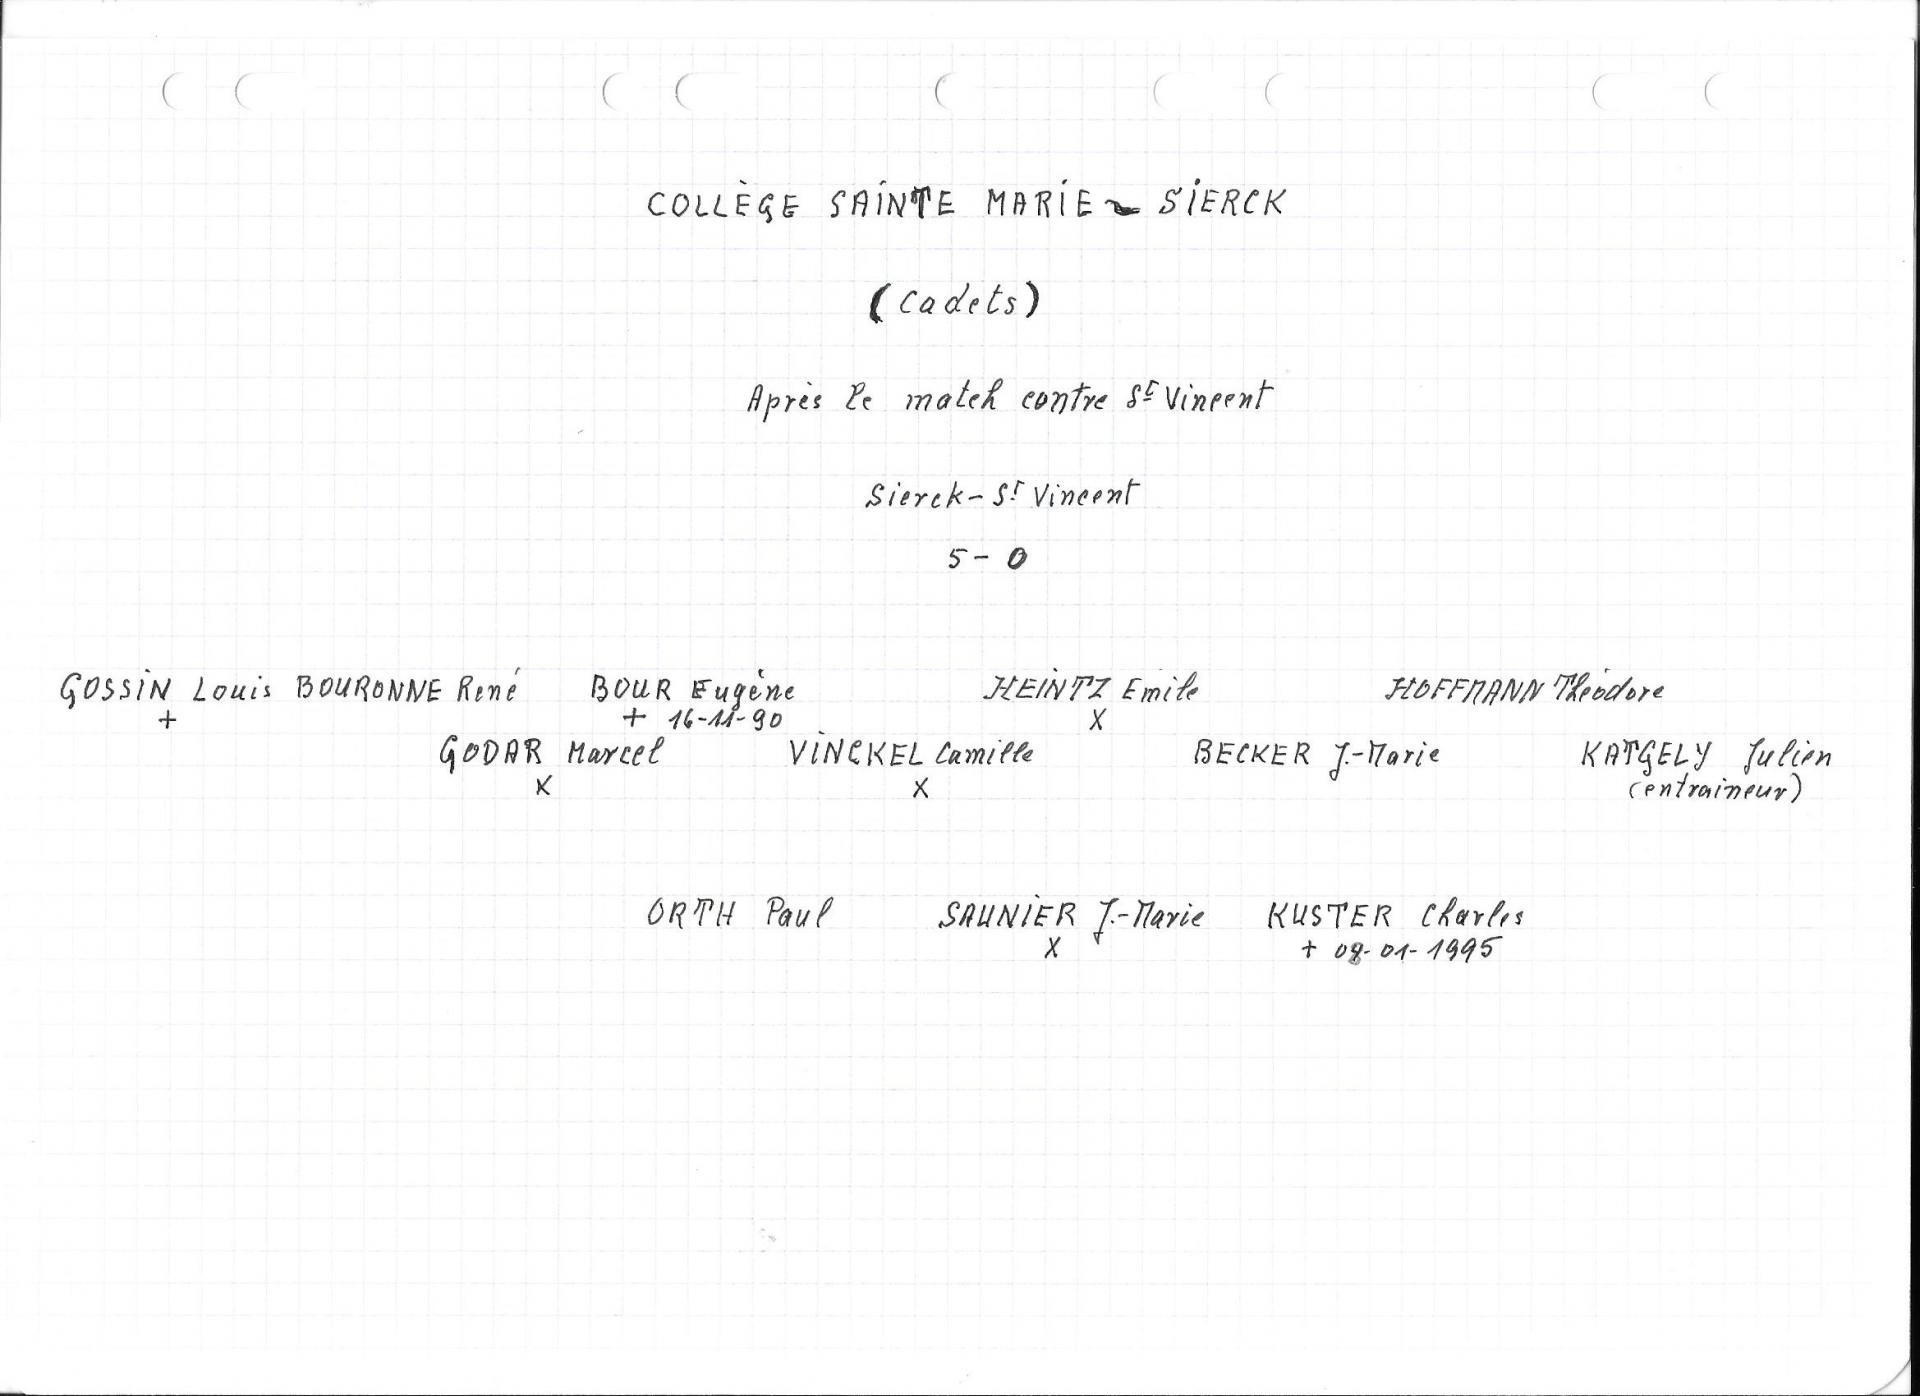 COLLÈGE SAINTE MARIE ~ SIERCK
(Cadets)
Après le match contre St Vincent
Sierck - St Vincent
5 - 0
GOSSIN Louis BOURONNE René BOUR Eugène HEINTZ Emile HOFFMANN Théodore
+ + 16-11-90 X
GODAR Marcel VINCKEL Camille BECKER J.-Marie KATGELY Julien
X X (entraineur)
ORTH Paul SAUNIER J.-Marie KUSTER Charles
X + 09-01-1995